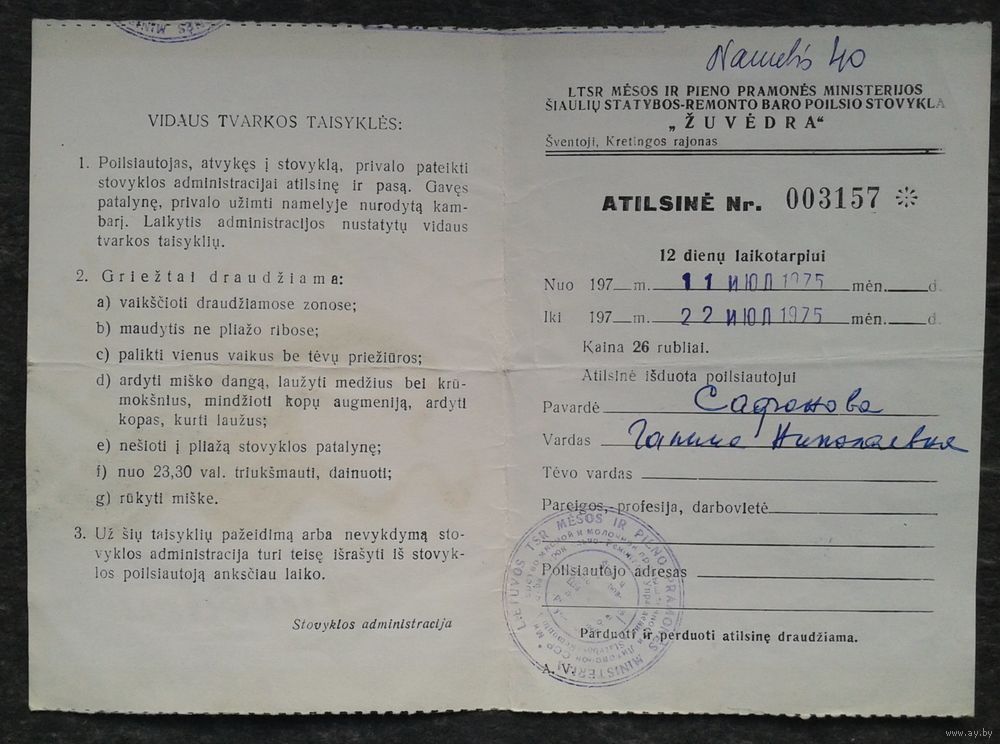 VIDAUS TVARKOS TAISYKLĖS:
1. Poilsiautojas, atvykęs į stovyklą, privalo pateikti
stovyklos administracijai atilsinę ir pasą. Gavęs
patalynę, privalo užimti namelyje nurodytą kam-
barį. Laikytis administracijos nustatytų vidaus
tvarkos taisyklių.
2. Griežtai draudžiama:
a) vaikščioti draudžiamose zonose;
b) maudytis ne pliažo ribose;
c) palikti vienus vaikus be tėvų priežiūros;
d) ardyti miško dangą, laužyti medžius bei krū-
mokšnius, mindžioti kopų augmeniją, ardyti
kopas, kurti laužus;
e) nešioti į pliažą stovyklos patalynę;
f) nuo 23,30 val. triukšmauti, dainuoti;
g) rūkyti miške.
3. Už šių taisyklių pažeidimą arba nevykdymą sto-
vyklos administracija turi teisę išrašyti iš stovyk-
los poilsiautoją anksčiau laiko.
Stovyklos administracija
Namelis 40
LTSR MĖSOS IR PIENO PRAMONĖS MINISTERIJOS
ŠIAULIŲ STATYBOS-REMONTO BARO POILSIO STOVYKLA
„ŽUVĖDRA“
Šventoji, Kretingos rajonas
ATILSINĖ Nr. 003157 *
12 dienų laikotarpiui
Nuo 197 m. 11 ИЮЛ 1975 mėn. d.
Iki 197 m. 22 ИЮЛ 1975 mėn. d.
Kaina 26 rubliai.
Atilsinė išduota poilsiautojui
Pavardė Сафонова
Vardas Галина Николаевна
Tėvo vardas
Pareigos, profesija, darbovietė
Poilsiautojo adresas
Parduoti ir perduoti atilsinę draudžiama.
LIETUVOS TSR MĖSOS IR PIENO PRAMONĖS MINISTERIJA
www.ay.by